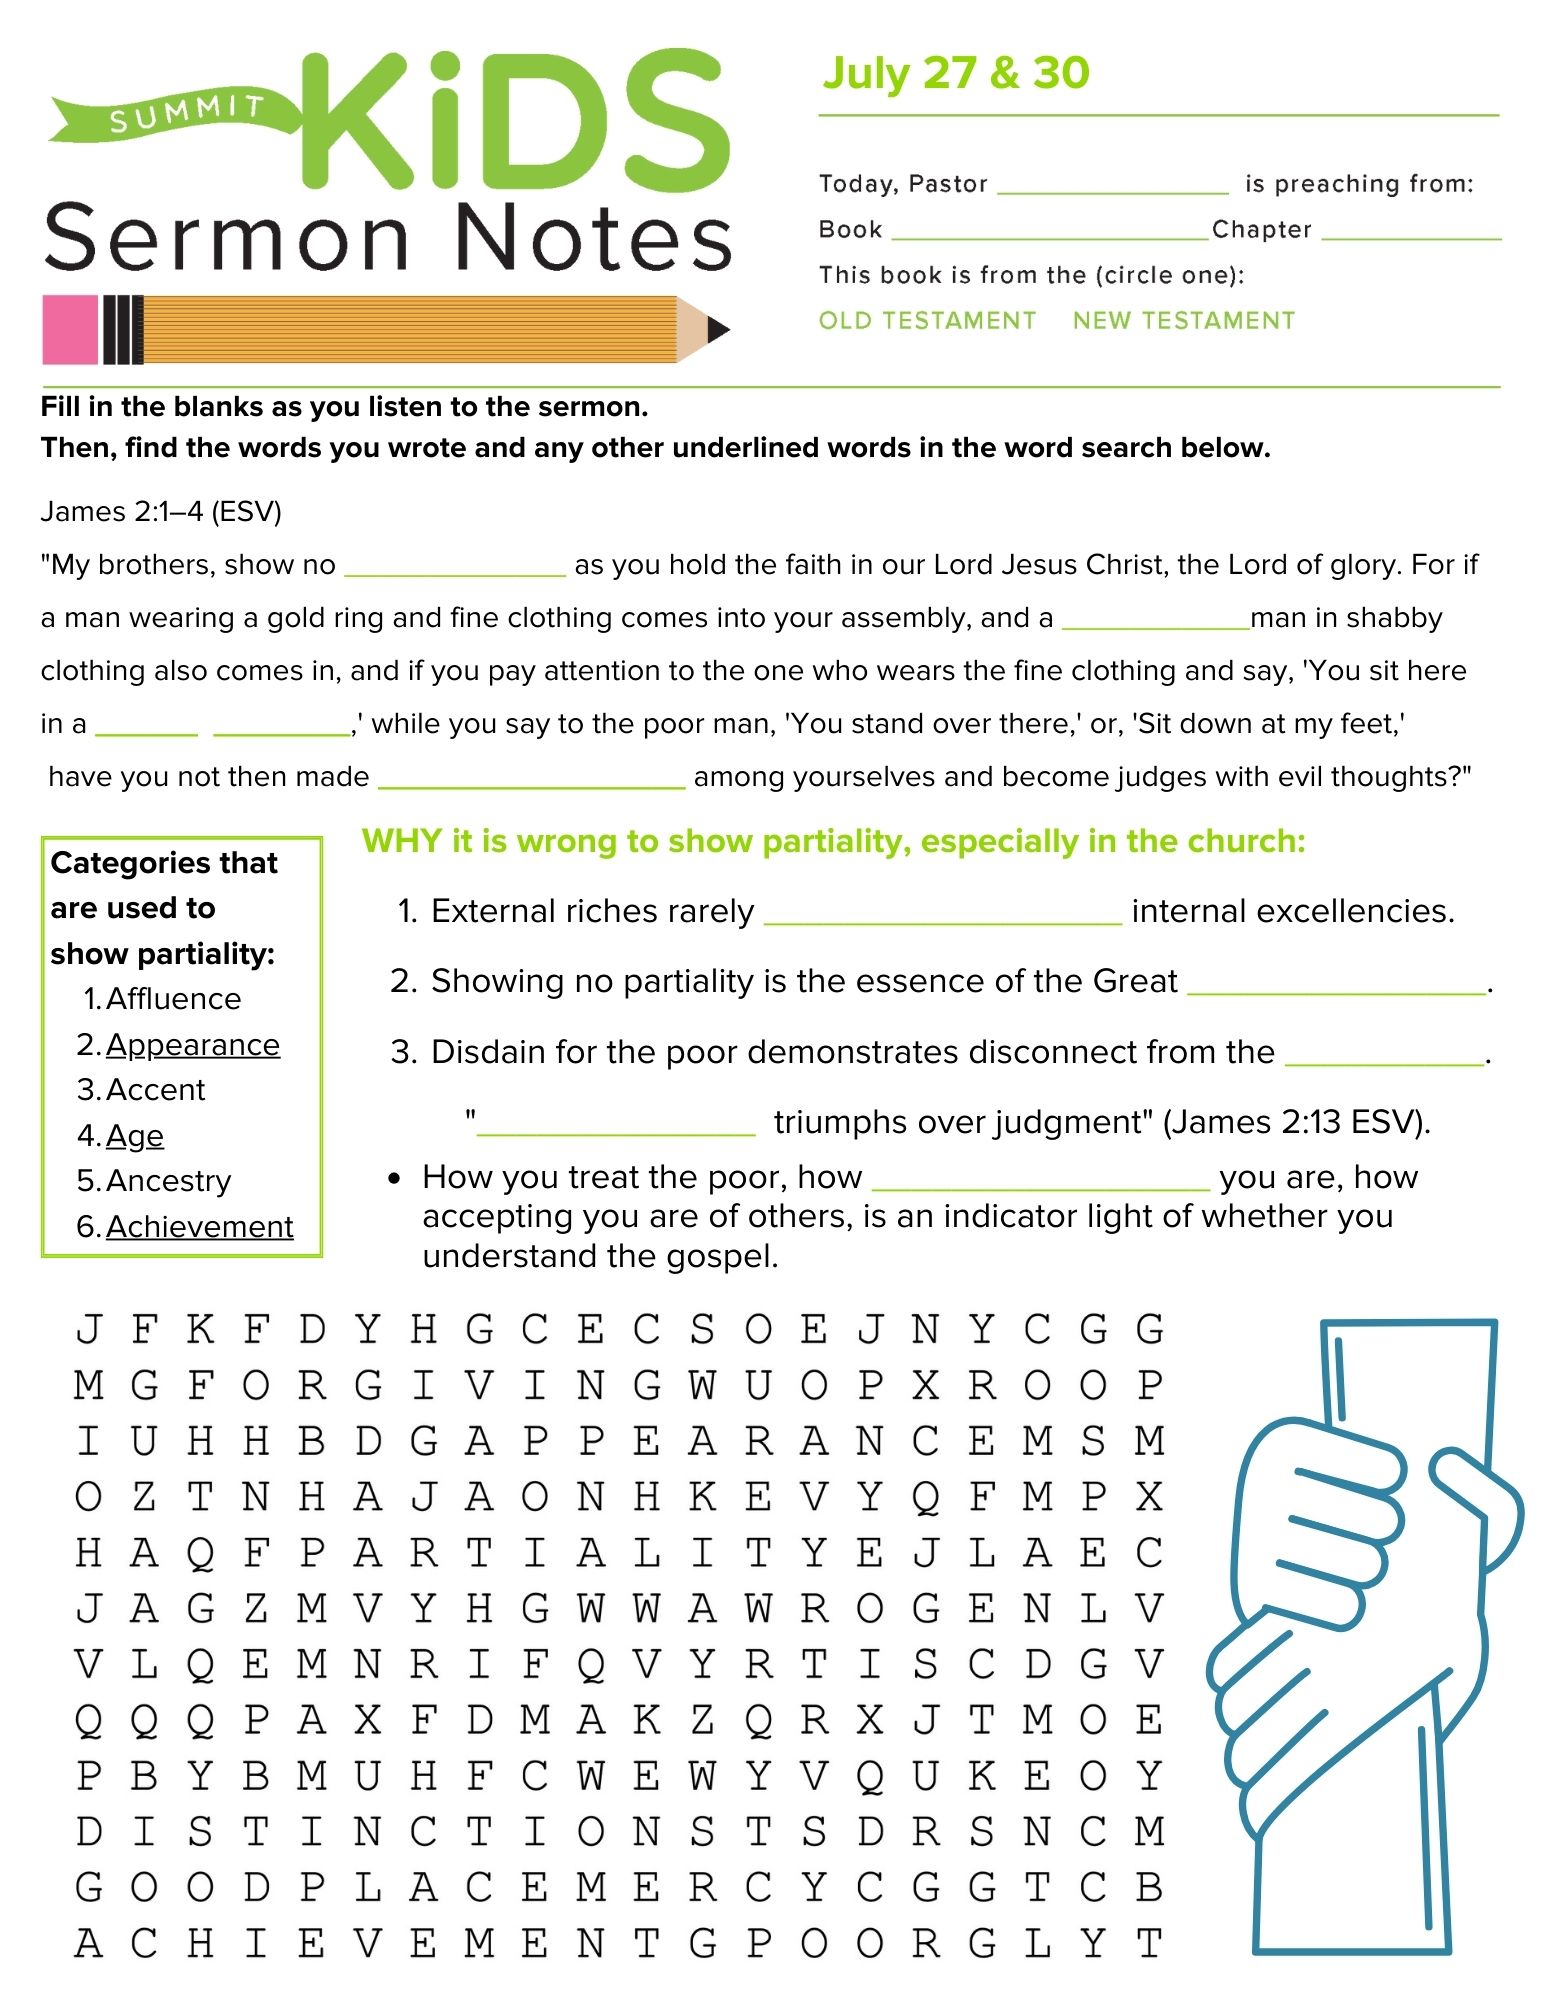 SUMMIT KiDS
Sermon Notes
July 27 & 30
Today, Pastor ________________ is preaching from:
Book ______________________ Chapter _____________
This book is from the (circle one):
OLD TESTAMENT NEW TESTAMENT
Fill in the blanks as you listen to the sermon.
Then, find the words you wrote and any other underlined words in the word search below.
James 2:1–4 (ESV)
"My brothers, show no _____________ as you hold the faith in our Lord Jesus Christ, the Lord of glory. For if
a man wearing a gold ring and fine clothing comes into your assembly, and a ___________man in shabby
clothing also comes in, and if you pay attention to the one who wears the fine clothing and say, 'You sit here
in a ______ ________,' while you say to the poor man, 'You stand over there,' or, 'Sit down at my feet,'
have you not then made __________________ among yourselves and become judges with evil thoughts?"
Categories that
are used to
show partiality:
1. Affluence
2. Appearance
3. Accent
4. Age
5. Ancestry
6. Achievement
WHY it is wrong to show partiality, especially in the church:
1. External riches rarely __________________ internal excellencies.
2. Showing no partiality is the essence of the Great _______________.
3. Disdain for the poor demonstrates disconnect from the __________.
"______________ triumphs over judgment" (James 2:13 ESV).
• How you treat the poor, how _________________ you are, how
accepting you are of others, is an indicator light of whether you
understand the gospel.
J F K F D Y H G C E C S O E J N Y C G G
M G F O R G I V I N G W U O P X R O O P
I U H H B D G A P P E A R A N C E M S M
O Z T N H A J A O N H K E V Y Q F M P X
H A Q F P A R T I A L I T Y E J L A E C
J A G Z M V Y H G W W A W R O G E N L V
V L Q E M N R I F Q V Y R T I S C D G V
Q Q Q P A X F D M A K Z Q R X J T M O E
P B Y B M U H F C W E W Y V Q U K E O Y
D I S T I N C T I O N S T S D R S N C M
G O O D P L A C E M E R C Y C G G T C B
A C H I E V E M E N T G P O O R G L Y T